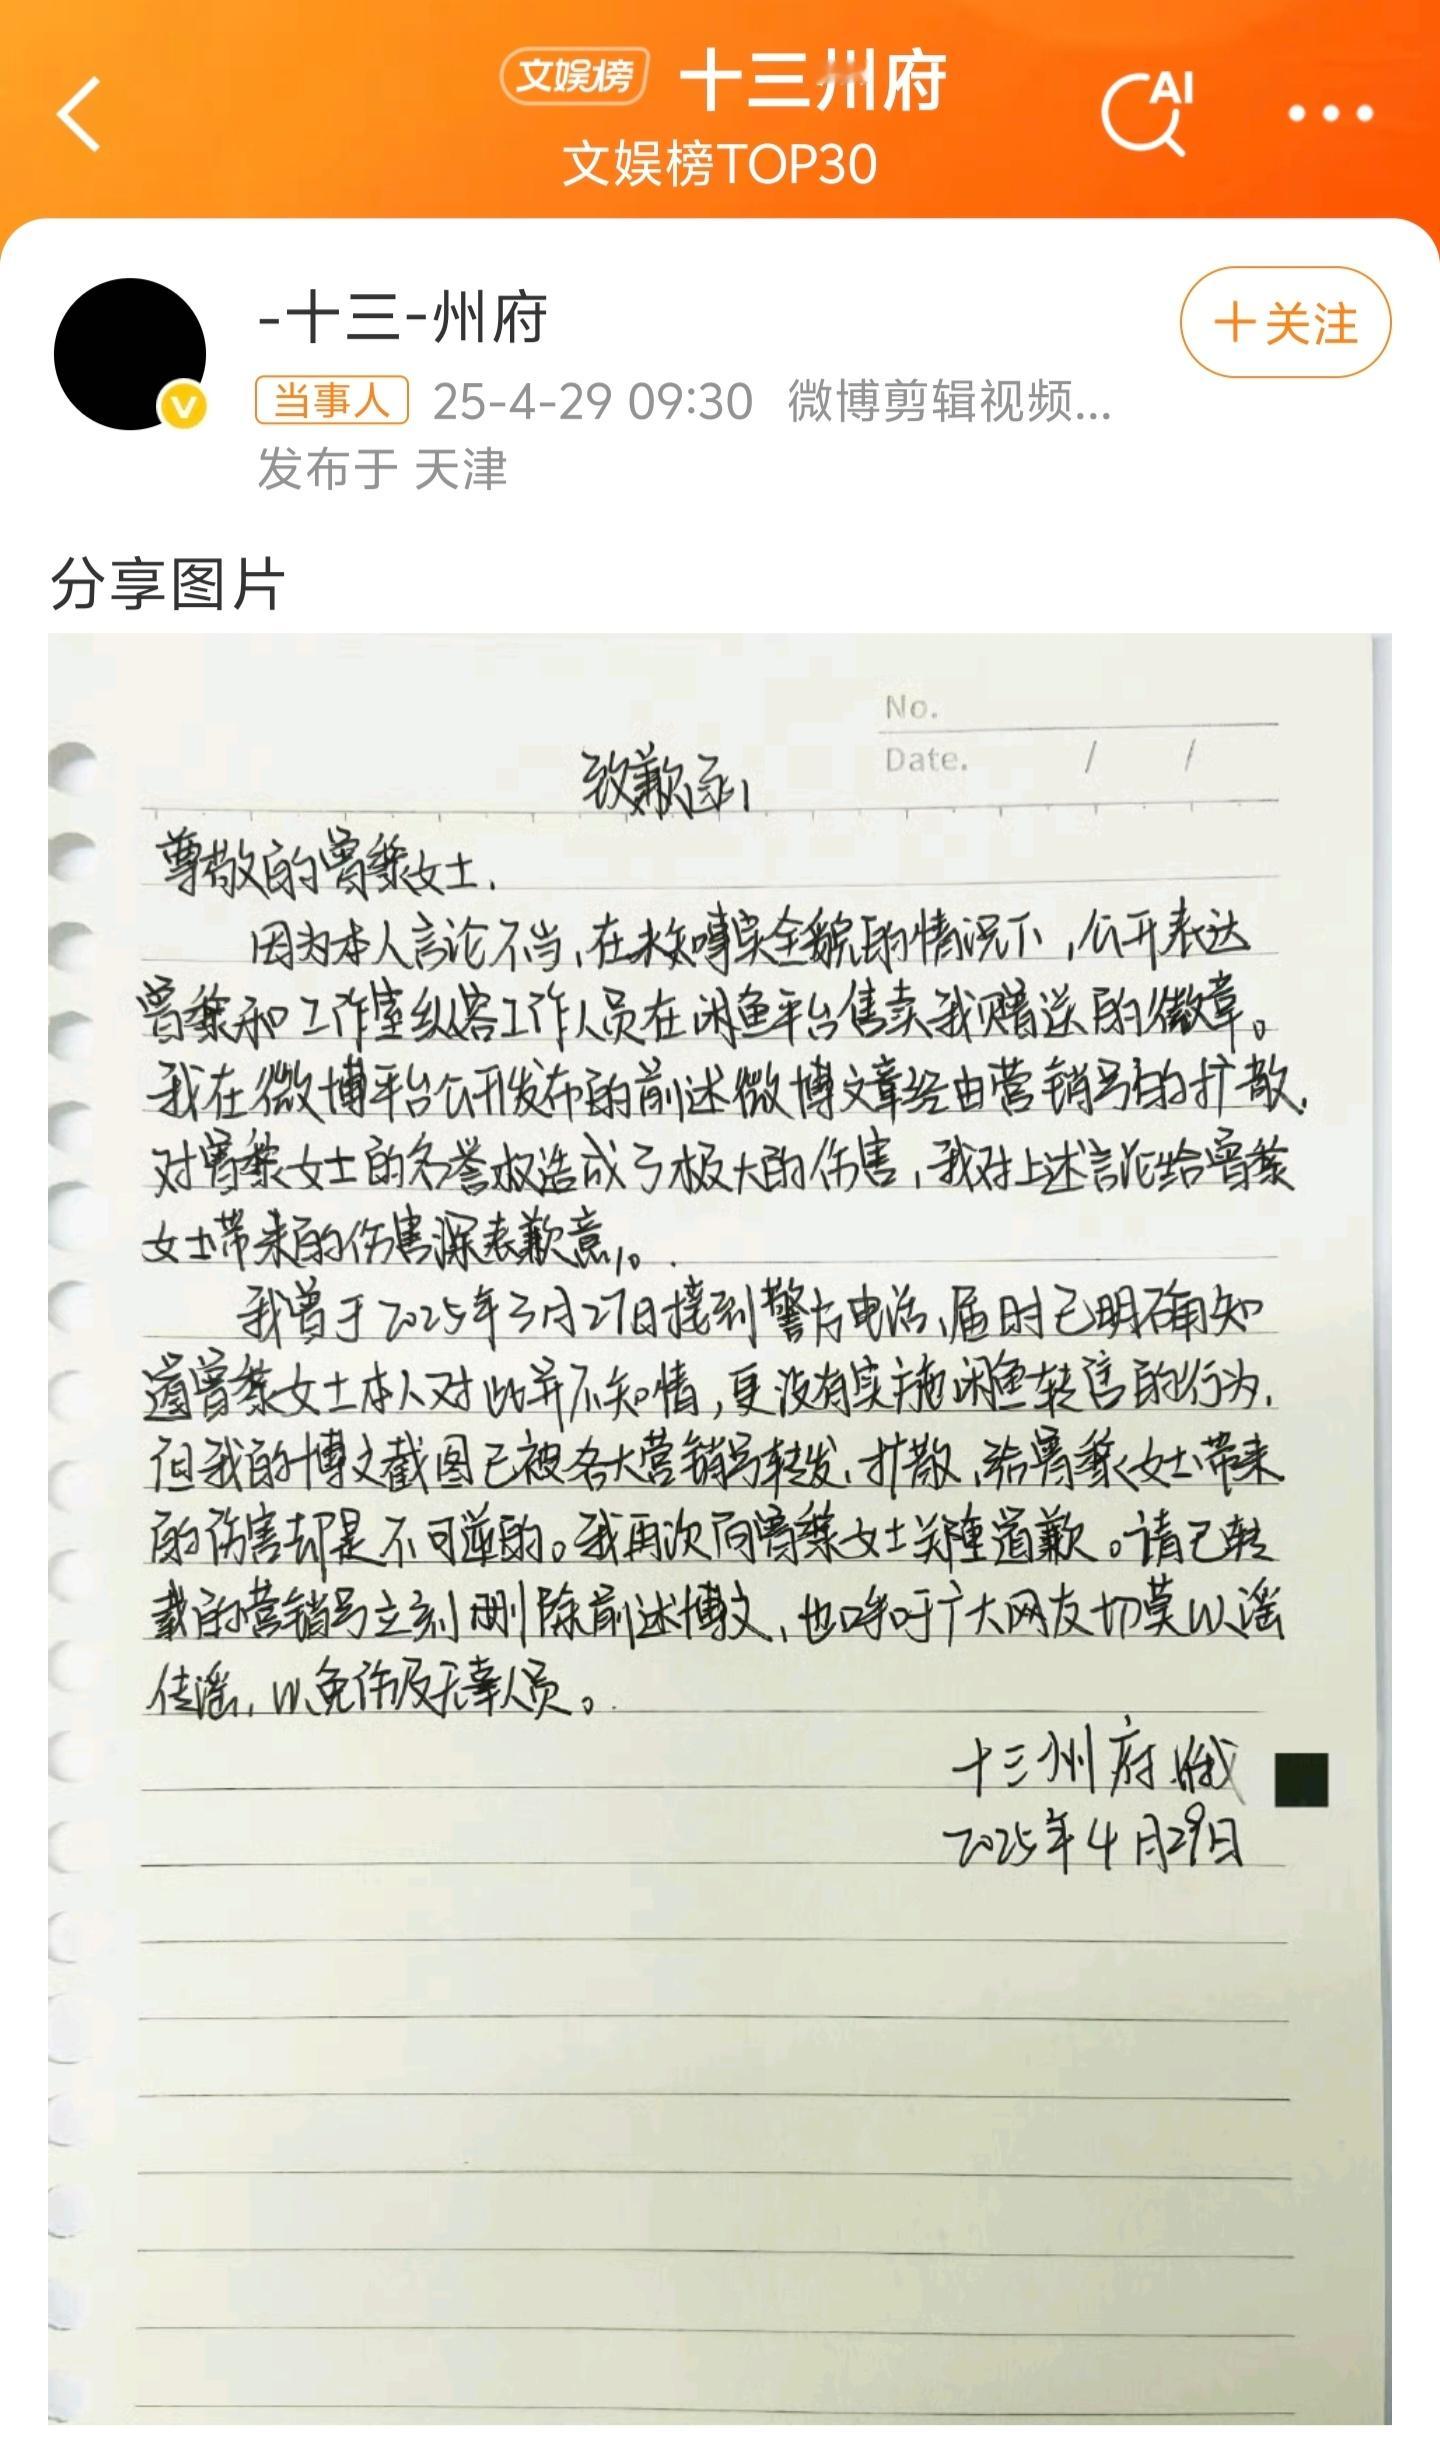 文娱榜 十三州府
AI
文娱榜TOP30
-十三-州府
+关注
当事人 25-4-29 09:30 微博剪辑视频...
发布于 天津
分享图片
No.
Date. / /
致歉函
尊敬的曾黎女士,
因为本人言论不当,在未知事实全貌的情况下,公开表达
曾黎和工作室纵容工作人员在闲鱼平台售卖我赠送的徽章。
我在微博平台公开发布的前述微博文章经由营销号的扩散,
对曾黎女士的名誉权造成了极大的伤害,我对上述言论给曾黎
女士带来的伤害深表歉意。
我曾于2025年3月27日接到警方电话,届时已明确知
道曾黎女士本人对此并不知情,更没有实施闲鱼转售的行为,
但我的博文截图已被各大营销号转发、扩散,给曾黎女士带来
的伤害却是不可逆的。我再次向曾黎女士郑重道歉。请已转
载的营销号立刻删除前述博文,也呼吁广大网友切莫以谣
传谣,以免伤及无辜人员。
十三州府
2025年4月29日